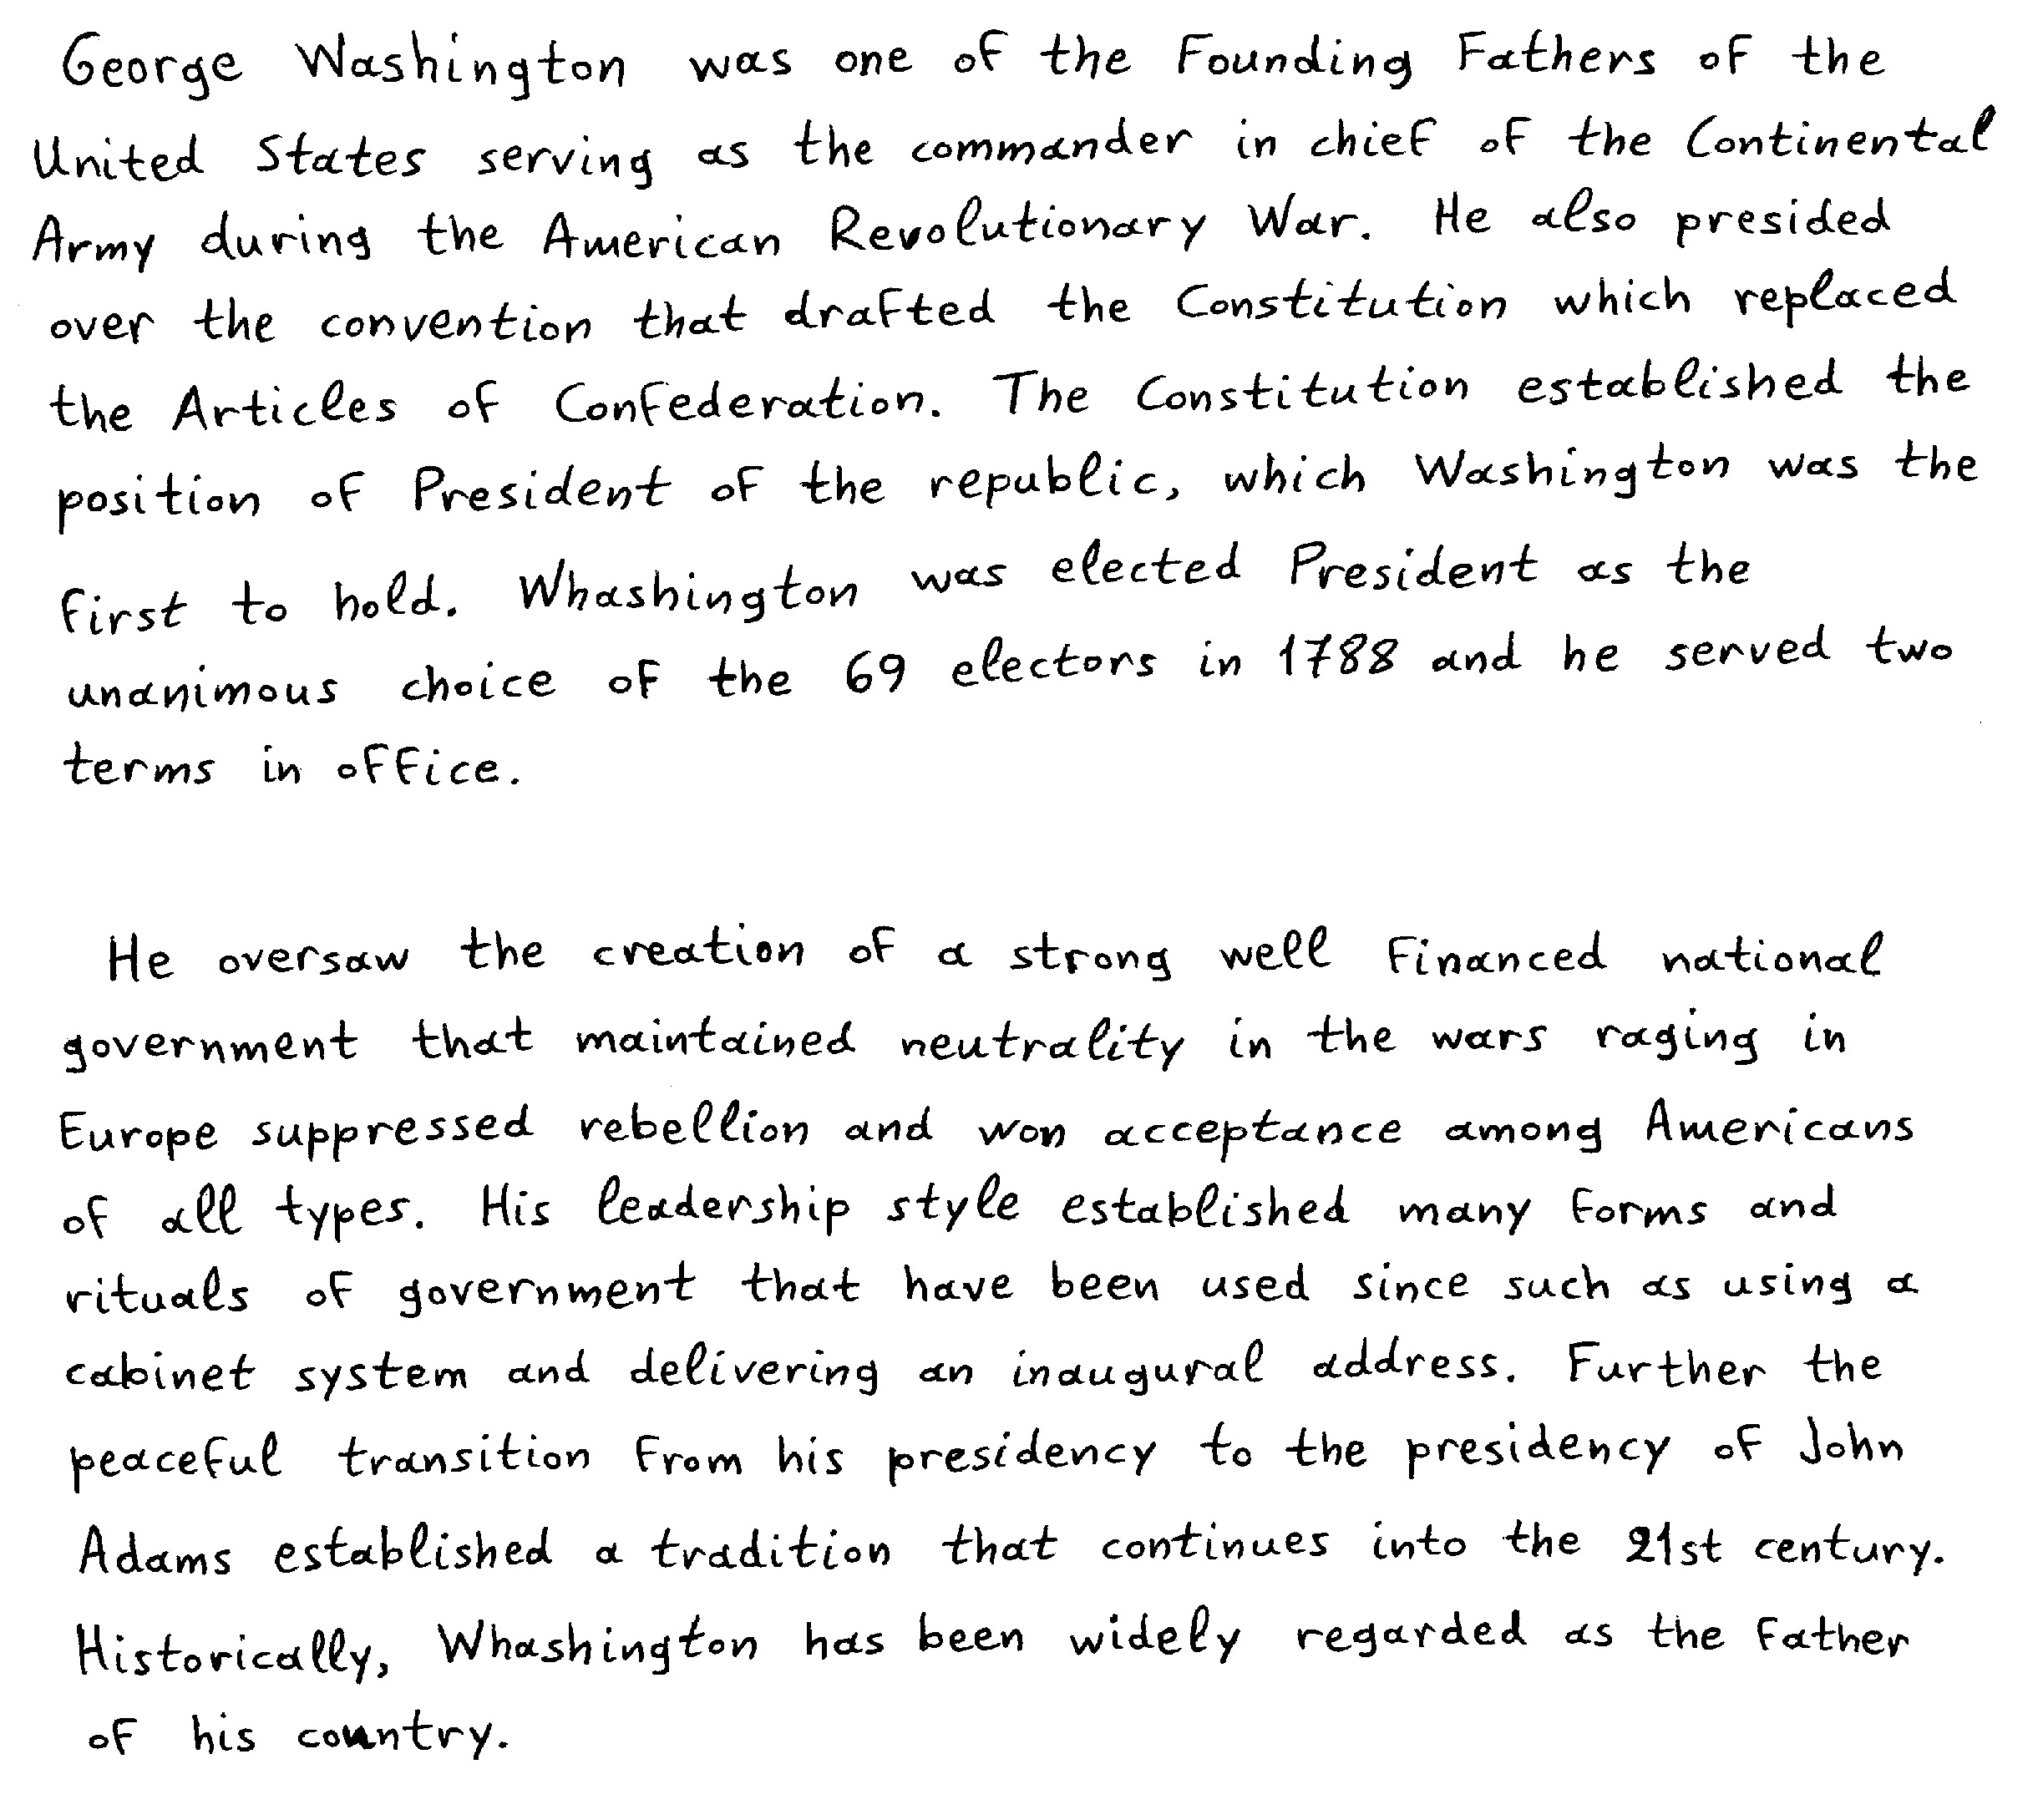 George Washington was one of the Founding Fathers of the
United States serving as the commander in chief of the Continental
Army during the American Revolutionary War. He also presided
over the convention that drafted the Constitution which replaced
the Articles of Confederation. The Constitution established the
position of President of the republic, which Washington was the
first to hold. Whashington was elected President as the
unanimous choice of the 69 electors in 1788 and he served two
terms in office.
He oversaw the creation of a strong well financed national
government that maintained neutrality in the wars raging in
Europe suppressed rebellion and won acceptance among Americans
of all types. His leadership style established many forms and
rituals of government that have been used since such as using a
cabinet system and delivering an inaugural address. Further the
peaceful transition from his presidency to the presidency of John
Adams established a tradition that continues into the 21st century.
Historically, Whashington has been widely regarded as the father
of his country.